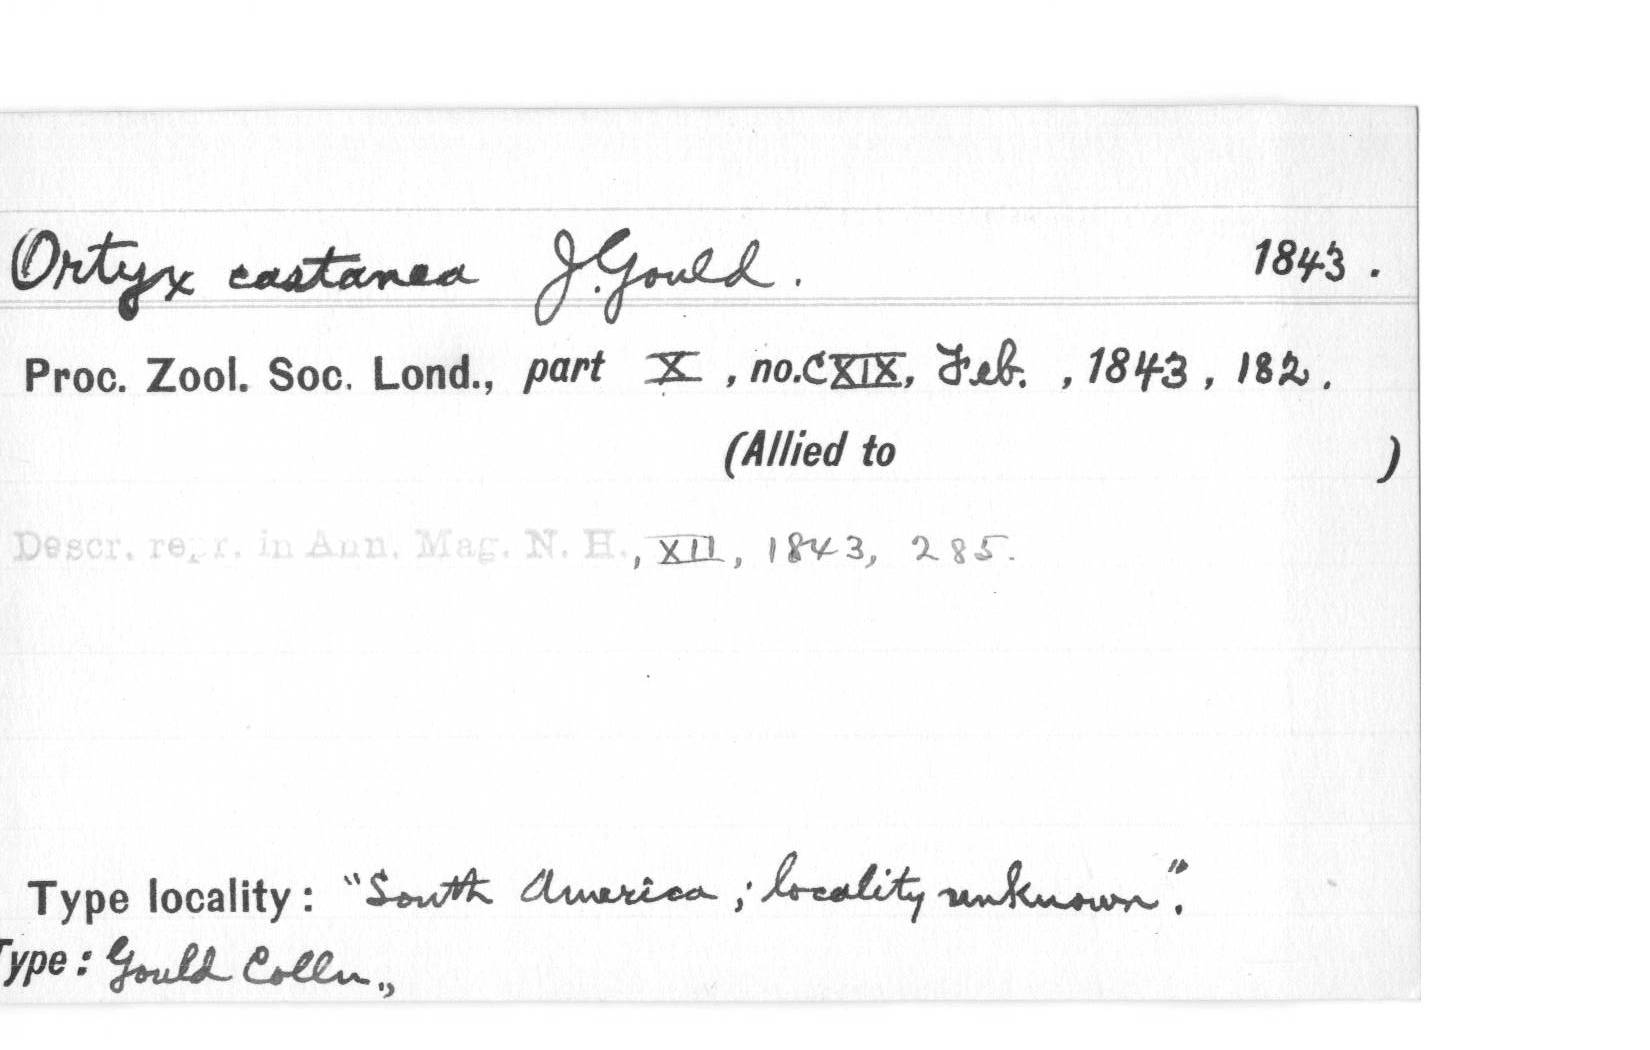 Ortyx castanea J. Gould. 1843.
Proc. Zool. Soc. Lond., part X, no. CXIX, Feb., 1843, 182.
(Allied to )
Descr. repr. in Ann. Mag. N. H., XII, 1843, 285.
Type locality: "South America; locality unknown".
Type: Gould Colln.,